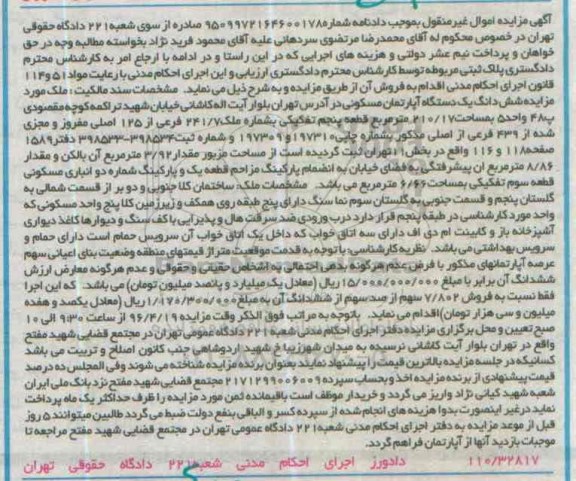 آگهی مزایده اموال غیرمنقول بموجب دادنامه شماره ۹۵۰۹۹۷۲۱۶۴۶۰۰۱۷۸ صادره از سوی شعبه ۲۲۱ دادگاه حقوقی
تهران در خصوص محکوم له آقای محمدرضا مرتضوی سردهائی علیه آقای محمود فرید نژاد بخواسته مطالبه وجه در حق
خواهان و پرداخت نیم عشر دولتی و هزینه های اجرایی که در این راستا و در ادامه با ارجاع امر به کارشناس محترم
دادگستری پلاک ثبتی مربوطه توسط کارشناس محترم دادگستری ارزیابی و این اجرای احکام مدنی با رعایت مواد ۵۱ و ۱۱۴
قانون اجرای احکام مدنی اقدام به فروش آن از طریق مزایده و به شرح ذیل می نماید. مشخصات سند مالکیت: ملک مورد
مزایده شش دانگ یک دستگاه آپارتمان مسکونی در آدرس تهران بلوار آیت اله کاشانی خیابان شهید تراکمه کوچه مقصودی
پ۴۸ واحد۵ بمساحت ۲۱۰/۱۷ مترمربع قطعه پنجم تفکیکی بشماره ملک ۲۴۱/۷ فرعی از ۱۲۵ اصلی مفروز و مجزی
شده از ۴۳۹ فرعی از اصلی مذکور بشماره چاپی ۱۹۷۳۱۰ و ۱۹۷۳۰۹ و شماره ثبت ۳۹۸۵۳۴-۳۹۸۵۳۳ دفتر ۱۵۸۹
صفحه ۱۱۸ و ۱۱۶ واقع در بخش ۱۱ تهران ثبت گردیده است از مساحت مزبور مقدار ۳/۹۲ مترمربع آن بالکن و مقدار
۸/۸۶ مترمربع ان پیشرفتگی به فضای خیابان به انضمام پارکینگ مزاحم قطعه یک و پارکینگ شماره دو انباری مسکونی
قطعه سوم تفکیکی بمساحت ۶/۶۶ مترمربع می باشد. مشخصات ملک: ساختمان کلا جنوبی و دو بر از قسمت شمالی به
گلستان پنجم و قسمت جنوبی به گلستان سوم نما سنگ دارای پنج طبقه روی همکف و زیرزمین کلا پنج واحد مسکونی که
واحد مورد کارشناسی در طبقه پنجم قرار دارد درب ورودی ضد سرقت هال و پذیرایی با کف سنگ و دیوارها کاغذ دیواری
آشپزخانه باز و کابینت ام دی اف دارای سه اتاق خواب که داخل یک اتاق خواب آن سرویس حمام است دارای حمام و
سرویس بهداشتی می باشد. نظریه کارشناسی: با توجه به قدمت موقعیت متراژ قیمتهای منطقه وضعیت بنای اعیانی سهم
عرصه آپارتمانهای مذکور با فرض عدم هرگونه بدهی احتمالی به اشخاص حقیقی و حقوقی و عدم هرگونه معارض ارزش
ششدانگ آن برابر با مبلغ ۱۵/۰۰۰/۰۰۰/۰۰۰ ریال (معادل یک میلیارد و پانصد میلیون تومان) می باشد. که این اجرا
فقط نسبت به فروش ۷/۸۰۲ سهم از صد سهم از ششدانگ آن به مبلغ ۱/۱۷۰/۳۰۰/۰۰۰ ریال (معادل یکصد و هفده
میلیون و سی هزار تومان) اقدام می نماید. باتوجه به مراتب فوق الذکر وقت مزایده ۹۶/۴/۱۹ از ساعت ۹:۳۰ الی ۱۰
صبح تعیین و محل برگزاری مزایده دفتر اجرای احکام مدنی شعبه ۲۲۱ دادگاه عمومی تهران در مجتمع قضایی شهید مفتح
واقع در تهران بلوار آیت کاشانی نرسیده به میدان شهر زیبا خ شهید اردوشاهی جنب کانون اصلاح و تربیت می باشد
کسانیکه در جلسه مزایده بالاترین قیمت را پیشنهاد نمایند بعنوان برنده مزایده شناخته می شوند وفی المجلس ده درصد
قیمت پیشنهادی از برنده مزایده اخذ و بحساب سپرده ۲۱۷۱۲۹۹۰۰۶۰۰۹ مجتمع قضایی شهید مفتح نزد بانک ملی ایران
شعبه شهید کیانی نژاد واریز می گردد و خریدار موظف است باقیمانده ثمن مورد مزایده را ظرف حداکثر یک ماه پرداخت
نماید درغیر اینصورت بدوا هزینه های انجام شده از سپرده کسر و الباقی بنفع دولت ضبط می گردد طالبین میتوانند ۵ روز
قبل از موعد مزایده به دفتر اجرای احکام مدنی شعبه ۲۲۱ دادگاه عمومی تهران در مجتمع قضایی شهید مفتح مراجعه تا
موجبات بازدید آنها از آپارتمان فراهم گردد.
۱۱۰/۳۲۸۱۷ دادورز اجرای احکام مدنی شعبه ۲۲۱ دادگاه حقوقی تهران